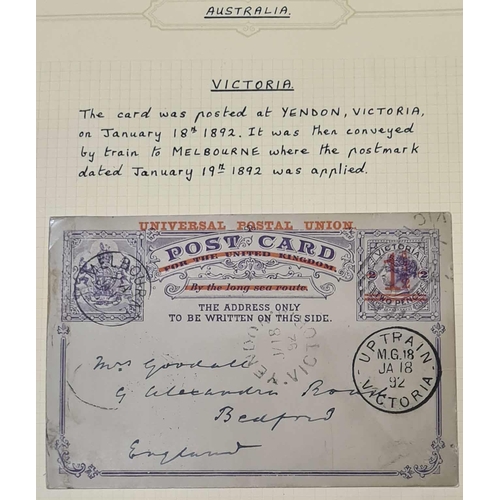 AUSTRALIA.
VICTORIA.
The card was posted at YENDON, VICTORIA,
on January 18th 1892. It was then conveyed
by train to MELBOURNE where the postmark
dated January 19th 1892 was applied.
UNIVERSAL POSTAL UNION.
POST CARD
FOR THE UNITED KINGDOM.
By the long sea route.
THE ADDRESS ONLY
TO BE WRITTEN ON THIS SIDE.
VICTORIA
2 2
TWO PENCE
MELBOURNE
YENDON
JA 18
92
VICTORIA
UP TRAIN
M.G.18
JA 18
92
VICTORIA
Mrs Goodall
9 Alexandra Road
Bedford
England